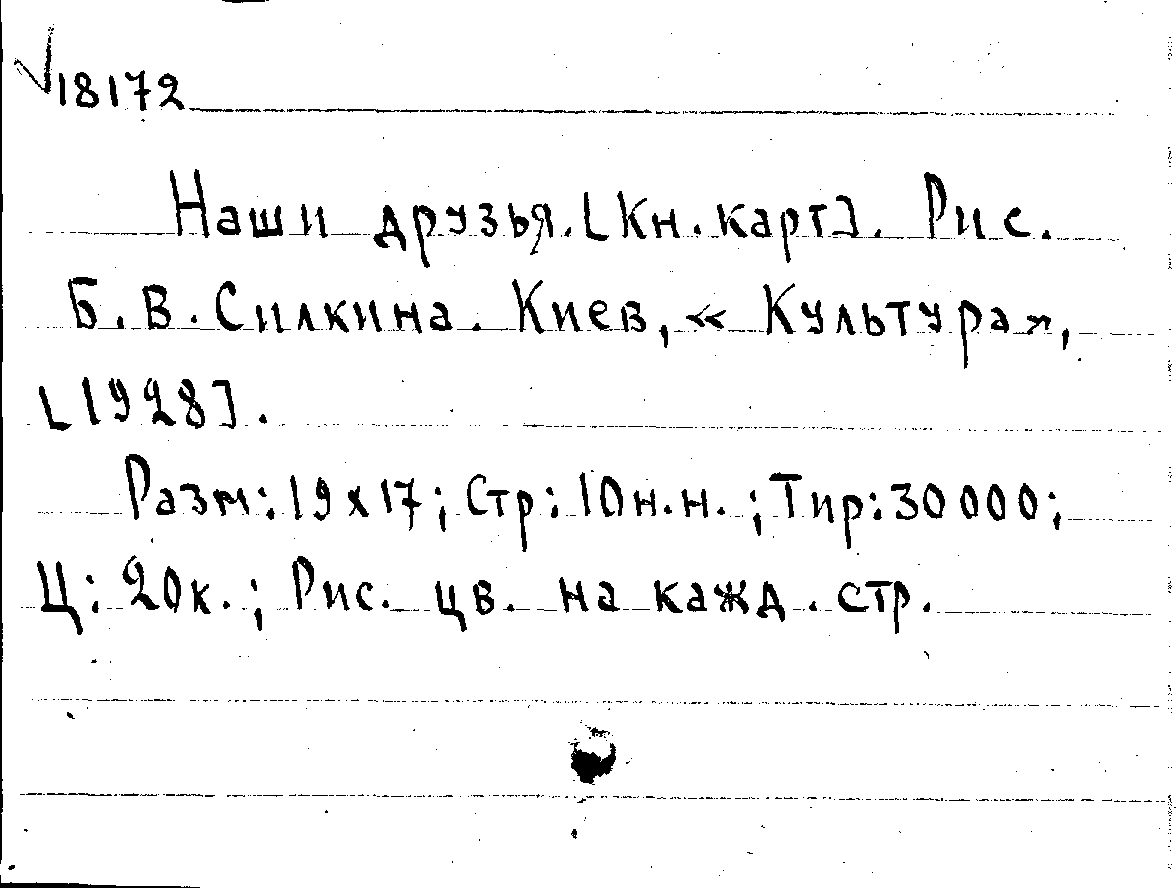 √18172
Наши друзья. [Кн. карт]. Рис.
Б. В. Силкина. Киев, « Культура»,
[1928].
Разм: 19х17; Стр: 10 н.н. ; Тир: 30000;
Ц: 20к. ; Рис. цв. на кажд. стр.